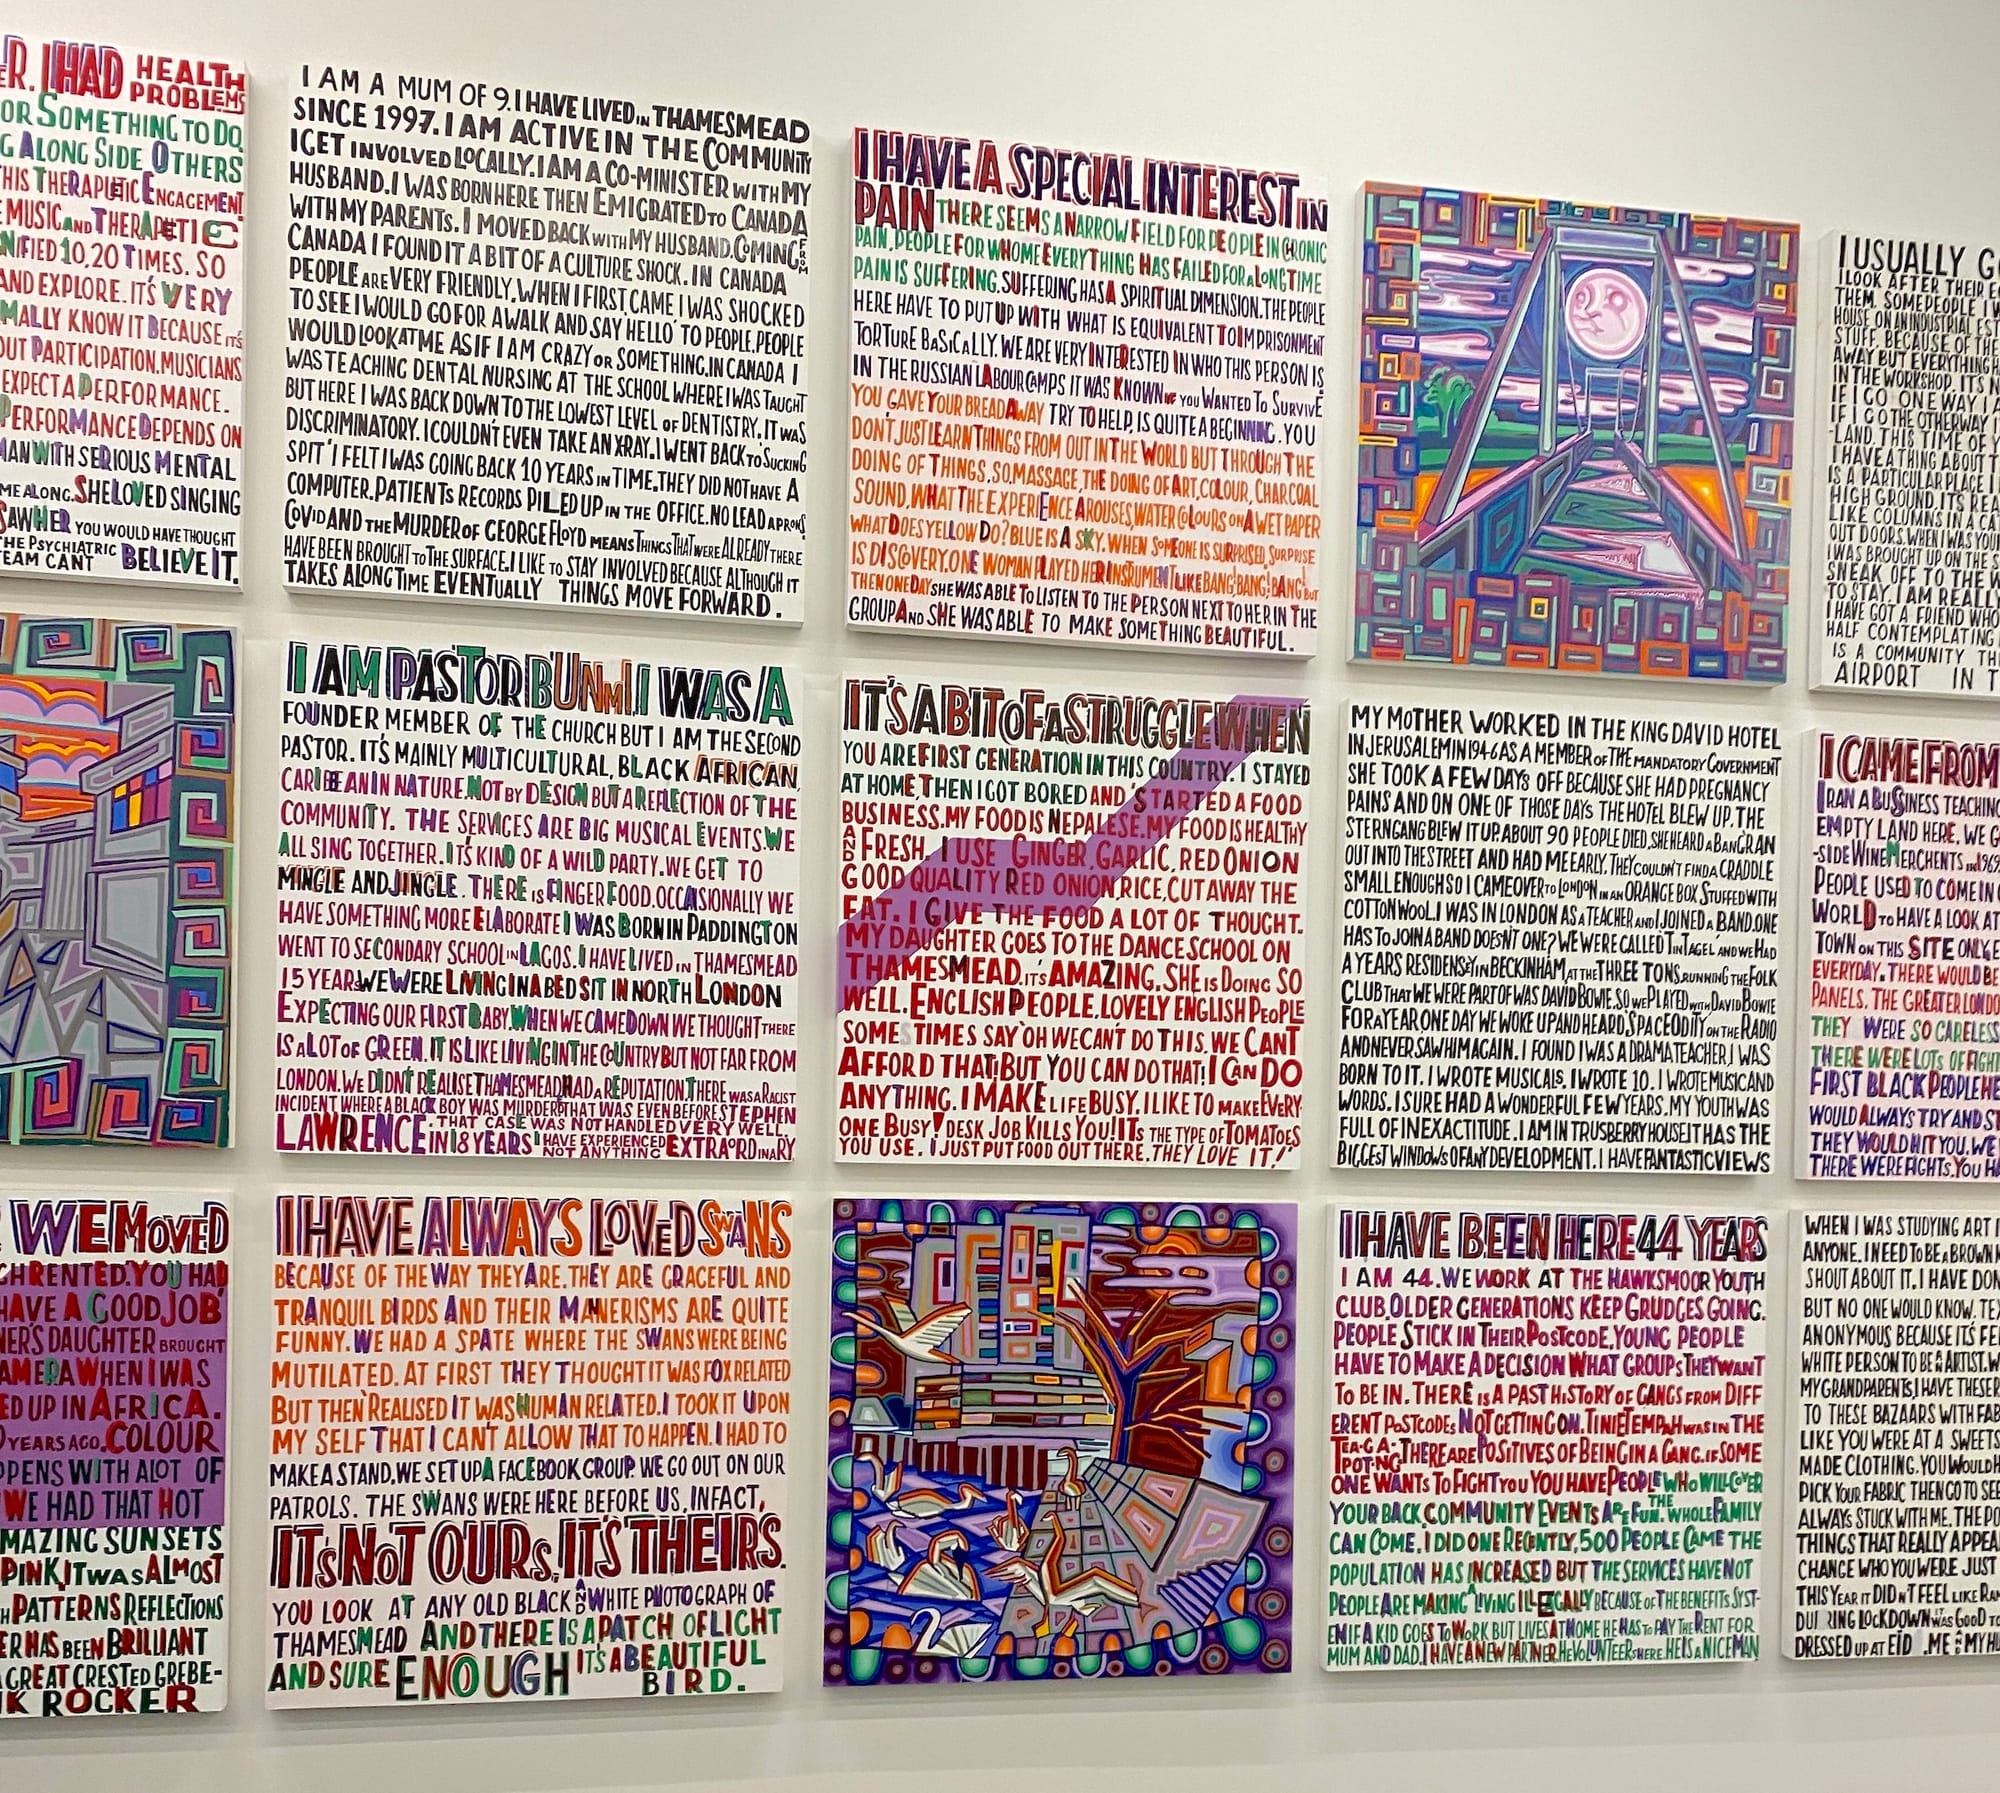 R. I HAD HEALTH PROBLEMS
OR SOMETHING TO DO,
G ALONG SIDE OTHERS
HIS THERAPUTIC ENGAGEMENT
MUSIC AND THERAPETIC
NIFIED 10,20 TIMES. SO
AND EXPLORE. IT'S VERY
MALLY KNOW IT BECAUSE IT'S
OUT PARTICIPATION. MUSICIANS
EXPECT A PERFORMANCE.
PERFORMANCE DEPENDS ON
MAN WITH SERIOUS MENTAL
ME ALONG. SHE LOVED SINGING
SAW HER YOU WOULD HAVE THOUGHT
THE PSYCHIATRIC
TEAM CANT BELIEVE IT.
I AM A MUM OF 9. I HAVE LIVED IN THAMESMEAD
SINCE 1997. I AM ACTIVE IN THE COMMUNITY
I GET INVOLVED LOCALLY. I AM A CO-MINISTER WITH MY
HUSBAND. I WAS BORN HERE THEN EMIGRATED TO CANADA
WITH MY PARENTS. I MOVED BACK WITH MY HUSBAND. COMING FROM
CANADA I FOUND IT A BIT OF A CULTURE SHOCK. IN CANADA
PEOPLE ARE VERY FRIENDLY. WHEN I FIRST CAME I WAS SHOCKED
TO SEE I WOULD GO FOR A WALK AND SAY 'HELLO' TO PEOPLE. PEOPLE
WOULD LOOK AT ME AS IF I AM CRAZY OR SOMETHING. IN CANADA I
WAS TEACHING DENTAL NURSING AT THE SCHOOL WHERE I WAS TAUGHT
BUT HERE I WAS BACK DOWN TO THE LOWEST LEVEL OF DENTISTRY. IT WAS
DISCRIMINATORY. I COULDN'T EVEN TAKE AN XRAY. I WENT BACK TO 'SUCKING
SPIT' I FELT I WAS GOING BACK 10 YEARS IN TIME. THEY DID NOT HAVE A
COMPUTER. PATIENTS RECORDS PILED UP IN THE OFFICE. NO LEAD APRONS
COVID AND THE MURDER OF GEORGE FLOYD MEANS THINGS THAT WERE ALREADY THERE
HAVE BEEN BROUGHT TO THE SURFACE. I LIKE TO STAY INVOLVED BECAUSE ALTHOUGH IT
TAKES A LONG TIME EVENTUALLY THINGS MOVE FORWARD.
I HAVE A SPECIAL INTEREST IN
PAIN THERE SEEMS A NARROW FIELD FOR PEOPLE IN CHRONIC
PAIN. PEOPLE FOR WHOME EVERYTHING HAS FAILED FOR A LONG TIME
PAIN IS SUFFERING. SUFFERING HAS A SPIRITUAL DIMENSION. THE PEOPLE
HERE HAVE TO PUT UP WITH WHAT IS EQUIVALENT TO IMPRISONMENT
TORTURE BASICALLY. WE ARE VERY INTERESTED IN WHO THIS PERSON IS
IN THE RUSSIAN LABOUR CAMPS IT WAS KNOWN IF YOU WANTED TO SURVIVE
YOU GAVE YOUR BREAD AWAY TRY TO HELP, IS QUITE A BEGINNING. YOU
DON'T JUST LEARN THINGS FROM OUT IN THE WORLD BUT THROUGH THE
DOING OF THINGS, SO, MASSAGE, THE DOING OF ART, COLOUR, CHARCOAL
SOUND, WHAT THE EXPERIENCE AROUSES, WATER COLOURS ON A WET PAPER
WHAT DOES YELLOW DO? BLUE IS A SKY. WHEN SOMEONE IS SURPRISED, SURPRISE
IS DISCOVERY. ONE WOMAN PLAYED HER INSTRUMENT LIKE BANG! BANG! BANG! BUT
THEN ONE DAY SHE WAS ABLE TO LISTEN TO THE PERSON NEXT TO HER IN THE
GROUP AND SHE WAS ABLE TO MAKE SOMETHING BEAUTIFUL.
I USUALLY G
I LOOK AFTER THEIR E
THEM. SOME PEOPLE I W
HOUSE ON AN INDUSTRIAL EST
STUFF. BECAUSE OF THE
AWAY BUT EVERYTHING H
IN THE WORKSHOP. ITS N
IF I GO ONE WAY I A
IF I GO THE OTHER WAY I
LAND. THIS TIME OF Y
I HAVE A THING ABOUT T
IS A PARTICULAR PLACE. I
HIGH GROUND. IT'S REA
LIKE COLUMNS IN A CA
OUT DOORS. WHEN I WAS YOU
I WAS BROUGHT UP ON THE S
SNEAK OFF TO THE W
TO STAY. I AM REALLY
I HAVE GOT A FRIEND WHO
HALF CONTEMPLATING
IS A COMMUNITY TH
AIRPORT IN T
I AM PASTOR BUNMI. I WAS A
FOUNDER MEMBER OF THE CHURCH BUT I AM THE SECOND
PASTOR. IT'S MAINLY MULTICULTURAL, BLACK AFRICAN,
CARIBEAN IN NATURE. NOT BY DESIGN BUT A REFLECTION OF THE
COMMUNITY. THE SERVICES ARE BIG MUSICAL EVENTS. WE
ALL SING TOGETHER. IT'S KIND OF A WILD PARTY. WE GET TO
MINGLE AND JINGLE. THERE IS FINGER FOOD. OCCASIONALLY WE
HAVE SOMETHING MORE ELABORATE I WAS BORN IN PADDINGTON
WENT TO SECONDARY SCHOOL IN LAGOS. I HAVE LIVED IN THAMESMEAD
15 YEARS WE WERE LIVING IN A BED SIT IN NORTH LONDON
EXPECTING OUR FIRST BABY. WHEN WE CAME DOWN WE THOUGHT THERE
IS A LOT OF GREEN. IT IS LIKE LIVING IN THE COUNTRY BUT NOT FAR FROM
LONDON. WE DIDN'T REALISE THAMESMEAD HAD A REPUTATION. THERE WAS A RACIST
INCIDENT WHERE A BLACK BOY WAS MURDERED THAT WAS EVEN BEFORE STEPHEN
LAWRENCE. THAT CASE WAS NOT HANDLED VERY WELL.
IN 18 YEARS I HAVE EXPERIENCED NOT ANYTHING EXTRAORDINARY.
IT'S A BIT OF A STRUGGLE WHEN
YOU ARE FIRST GENERATION IN THIS COUNTRY. I STAYED
AT HOME, THEN I GOT BORED AND STARTED A FOOD
BUSINESS. MY FOOD IS NEPALESE. MY FOOD IS HEALTHY
AND FRESH. I USE GINGER, GARLIC, RED ONION
GOOD QUALITY RED ONION, RICE, CUT AWAY THE
FAT. I GIVE THE FOOD A LOT OF THOUGHT.
MY DAUGHTER GOES TO THE DANCE SCHOOL ON
THAMESMEAD. IT'S AMAZING. SHE IS DOING SO
WELL. ENGLISH PEOPLE. LOVELY ENGLISH PEOPLE
SOMES TIMES SAY 'OH WE CAN'T DO THIS. WE CANT
AFFORD THAT! BUT YOU CAN DO THAT! I CAN DO
ANYTHING. I MAKE LIFE BUSY. I LIKE TO MAKE EVERY
ONE BUSY! DESK JOB KILLS YOU! ITS THE TYPE OF TOMATOES
YOU USE. I JUST PUT FOOD OUT THERE. THEY LOVE IT!"
MY MOTHER WORKED IN THE KING DAVID HOTEL
IN JERUSALEM IN 1946 AS A MEMBER OF THE MANDATORY GOVERNMENT
SHE TOOK A FEW DAYS OFF BECAUSE SHE HAD PREGNANCY
PAINS AND ON ONE OF THOSE DAYS THE HOTEL BLEW UP. THE
STERN GANG BLEW IT UP. ABOUT 90 PEOPLE DIED. SHE HEARD A BANG RAN
OUT INTO THE STREET AND HAD ME EARLY. THEY COULDN'T FIND A CRADDLE
SMALL ENOUGH SO I CAME OVER TO LONDON IN AN ORANGE BOX STUFFED WITH
COTTON WOOL. I WAS IN LONDON AS A TEACHER AND I JOINED A BAND. ONE
HAS TO JOIN A BAND DOESN'T ONE? WE WERE CALLED 'TINTAGEL' AND WE HAD
A YEARS RESIDENSEY IN BECKINHAM, AT THE THREE TONS. RUNNING THE FOLK
CLUB THAT WE WERE PART OF WAS DAVID BOWIE. SO WE PLAYED WITH DAVID BOWIE
FOR A YEAR ONE DAY WE WOKE UP AND HEARD 'SPACE ODITY' ON THE RADIO
AND NEVER SAW HIM AGAIN. I FOUND I WAS A DRAMA TEACHER. I WAS
BORN TO IT. I WROTE MUSICALS. I WROTE 10. I WROTE MUSIC AND
WORDS. I SURE HAD A WONDERFUL FEW YEARS. MY YOUTH WAS
FULL OF INEXACTITUDE. I AM IN TRUSBERRY HOUSE IT HAS THE
BIGGEST WINDOWS OF ANY DEVELOPMENT. I HAVE FANTASTIC VIEWS
I CAME FROM
I RAN A BUSINESS TEACHING
EMPTY LAND HERE. WE G
-SIDE WINE MERCHENTS IN 1969
PEOPLE USED TO COME IN
WORLD TO HAVE A LOOK AT
TOWN ON THIS SITE ONLY E
EVERYDAY. THERE WOULD BE
PANELS. THE GREATER LONDO
THEY WERE SO CARELESS
THERE WERE LOTS OF FIGHT
FIRST BLACK PEOPLE HE
WOULD ALWAYS TRY AND ST
THEY WOULD HIT YOU. WE
THERE WERE FIGHTS. YOU HA
WE MOVED
CH RENTED. YOU HAD
HAVE A GOOD JOB'
NER'S DAUGHTER BROUGHT
AMERA WHEN I WAS
ED UP IN AFRICA.
YEARS AGO. COLOUR
PENS WITH A LOT OF
WE HAD THAT HOT
MAZING SUN SETS
PINK, IT WAS ALMOST
H PATTERNS REFLECTIONS
ER HAS BEEN BRILLIANT
GREAT CRESTED GREBE-
K ROCKER
I HAVE ALWAYS LOVED SWANS
BECAUSE OF THE WAY THEY ARE. THEY ARE GRACEFUL AND
TRANQUIL BIRDS AND THEIR MANERISMS ARE QUITE
FUNNY. WE HAD A SPATE WHERE THE SWANS WERE BEING
MUTILATED. AT FIRST THEY THOUGHT IT WAS FOX RELATED
BUT THEN REALISED IT WAS HUMAN RELATED. I TOOK IT UPON
MY SELF THAT I CAN'T ALLOW THAT TO HAPPEN. I HAD TO
MAKE A STAND, WE SET UP A FACEBOOK GROUP. WE GO OUT ON OUR
PATROLS. THE SWANS WERE HERE BEFORE US, INFACT,
ITS NOT OURS, IT'S THEIRS.
YOU LOOK AT ANY OLD BLACK AND WHITE PHOTOGRAPH OF
THAMESMEAD AND THERE IS A PATCH OF LIGHT
AND SURE ENOUGH IT'S A BEAUTIFUL
BIRD.
I HAVE BEEN HERE 44 YEARS
I AM 44. WE WORK AT THE HAWKSMOOR YOUTH
CLUB. OLDER GENERATIONS KEEP GRUDGES GOING.
PEOPLE STICK IN THEIR POSTCODE. YOUNG PEOPLE
HAVE TO MAKE A DECISION WHAT GROUPS THEY WANT
TO BE IN. THERE IS A PAST HISTORY OF GANGS FROM DIFF
ERENT POSTCODES NOT GETTING ON. TINIE TEMPAH WAS IN THE
TEA-POT GA-NG. THERE ARE POSITIVES OF BEING IN A GANG. IF SOME
ONE WANTS TO FIGHT YOU YOU HAVE PEOPLE WHO WILL COVER
YOUR BACK. COMMUNITY EVENTS ARE FUN. THE WHOLE FAMILY
CAN COME. I DID ONE RECENTLY, 500 PEOPLE CAME THE
POPULATION HAS INCREASED BUT THE SERVICES HAVE NOT
PEOPLE ARE MAKING A LIVING ILLEGALLY BECAUSE OF THE BENEFITS SYST-
EM IF A KID GOES TO WORK BUT LIVES AT HOME HE HAS TO PAY THE RENT FOR
MUM AND DAD. I HAVE A NEW PARTNER. HE VOLUNTEERS HERE. HE IS A NICE MAN
WHEN I WAS STUDYING ART I
ANYONE. I NEED TO BE A BROWN
SHOUT ABOUT IT. I HAVE DON
BUT NO ONE WOULD KNOW. TEX
ANONYMOUS BECAUSE IT'S FE
WHITE PERSON TO BE AN ARTIST. W
MY GRANDPARENTS, I HAVE THESE
TO THESE BAZAARS WITH FAB
LIKE YOU WERE AT A SWEETS
MADE CLOTHING. YOU WOULD H
PICK YOUR FABRIC THEN GO TO SEE
ALWAYS STUCK WITH ME. THE PO
THINGS THAT REALLY APPEA
CHANGE WHO YOU WERE JUST
THIS YEAR IT DIDN'T FEEL LIKE RAM
DURING LOCKDOWN IT WAS GOOD TO
DRESSED UP AT EID. ME AND MY HU